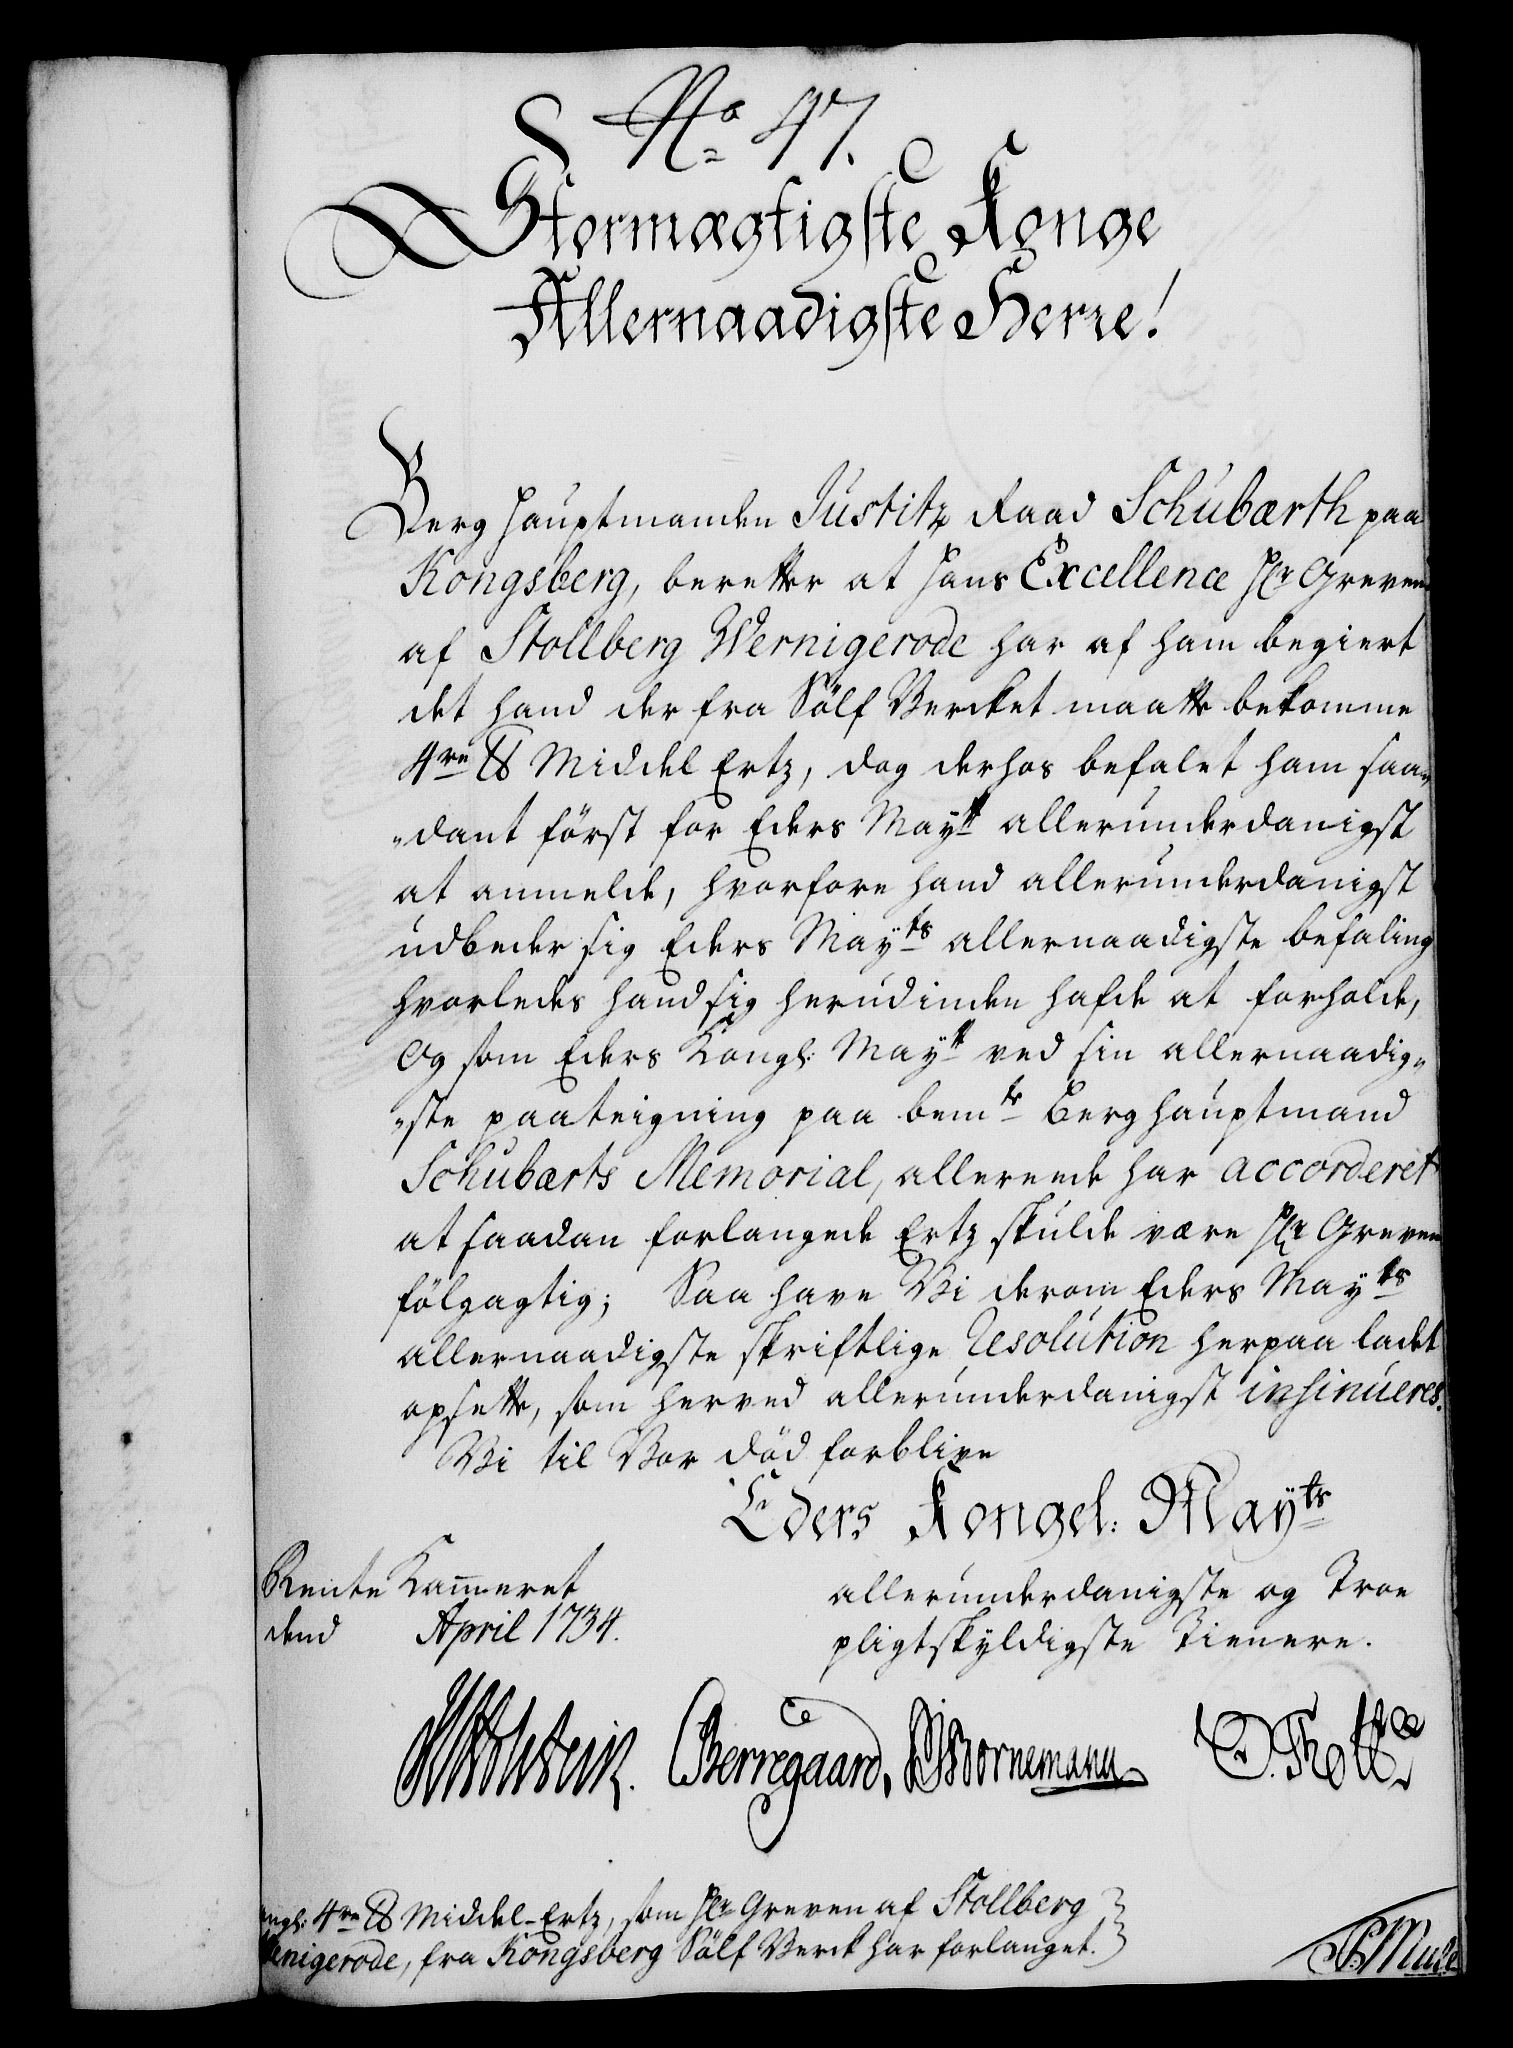 No 47.
Stormægtigste Konge
Allernaadigste Herre!
Berghauptmanden Justitz Raad Schubærth paa
Kongsberg, beretter at hans Excellence Hr Greven
af Stollberg Wernigerode har af ham begiert
det hand der fra Sölf Vercket maatte bekomme
4re ℔ Middel Ertz, dog derhos befalet ham saa„
„dant först for Eders Maytt allerunderdanigst
at anmelde, hvorfore hand allerunderdanigst
udbeder sig Eders Mayts allernaadigste befaling
hvorledes hand sig herudinden hafde at forholde,
Og som Eders Kongl: Maytt ved sin allernaadig„
„ste paateigning paa bemte Berghauptmand
Schubærts Memorial, allerede har accorderet
at saadan forlangede Ertz skulde være Hr Greven
fölgagtig; Saa have Vi derom Eders Mayts
allernaadigste skriftlige Resolution herpaa ladet
opsette, som herved allerunderdanigst insinueres.
Vi til Vor död forblive
Eders Kongel: Mayts
Rente Kammeret
dend April 1734.
allerunderdanigste og Troe
pligtskyldigste Tienere.
Berregaard. Bornemann O. Thott
angl: 4re ℔ Middel-Ertz, som Hr Greven af Stollberg
Wenigerode, fra Kongsberg Sölf Verck har forlanget.